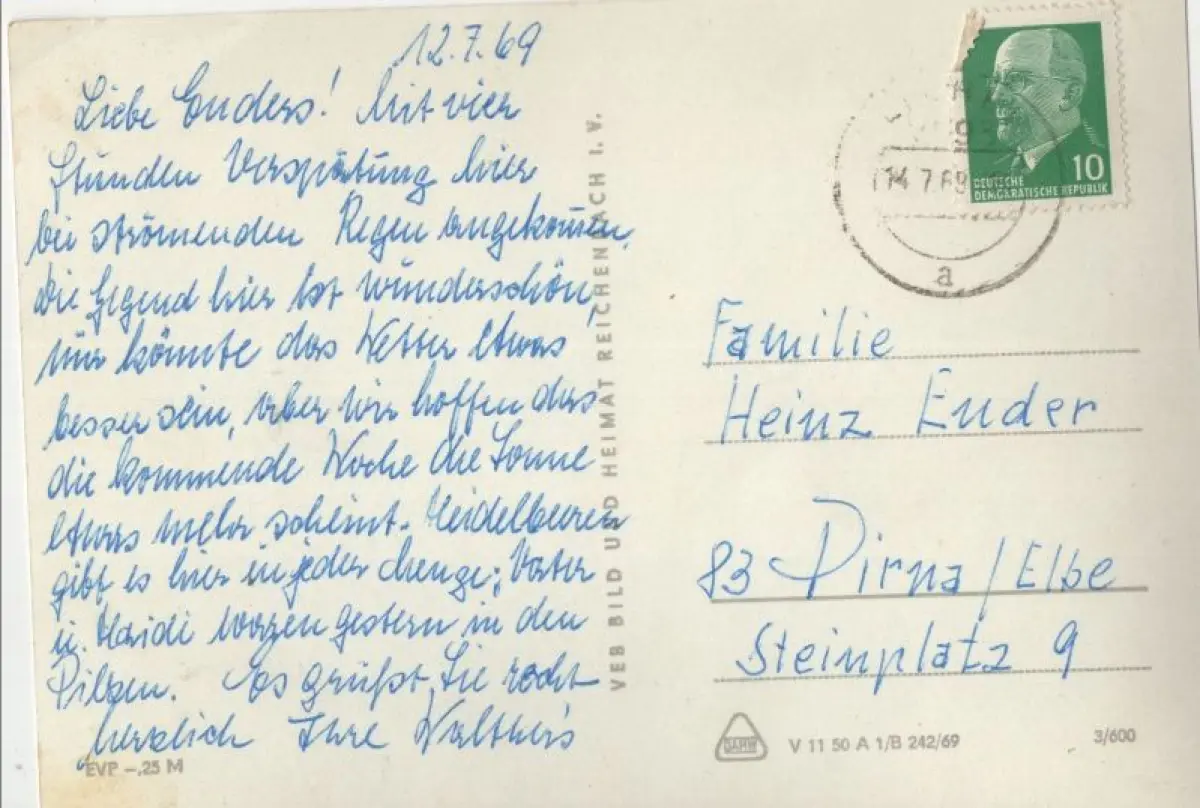 12.7.69
Liebe Enders! Mit vier
Stunden Verspätung hier
bei strömenden Regen angekommen.
Die Gegend hier ist wunderschön,
nur könnte das Wetter etwas
besser sein, aber wir hoffen das
die kommende Woche die Sonne
etwas mehr scheint. Heidelbeeren
gibt es hier in jeder Menge; Vater
u. Haidi waren gestern in den
Pilzen. Es grüßt Sie recht
herzlich Ihre Walther's
EVP -,25 M
VEB BILD UND HEIMAT REICHENBACH I. V.
10
DEUTSCHE
DEMOKRATISCHE REPUBLIK
14.7.69
a
Familie
Heinz Ender
83 Pirna/Elbe
Steinplatz 9
V 11 50 A 1/B 242/69
3/600